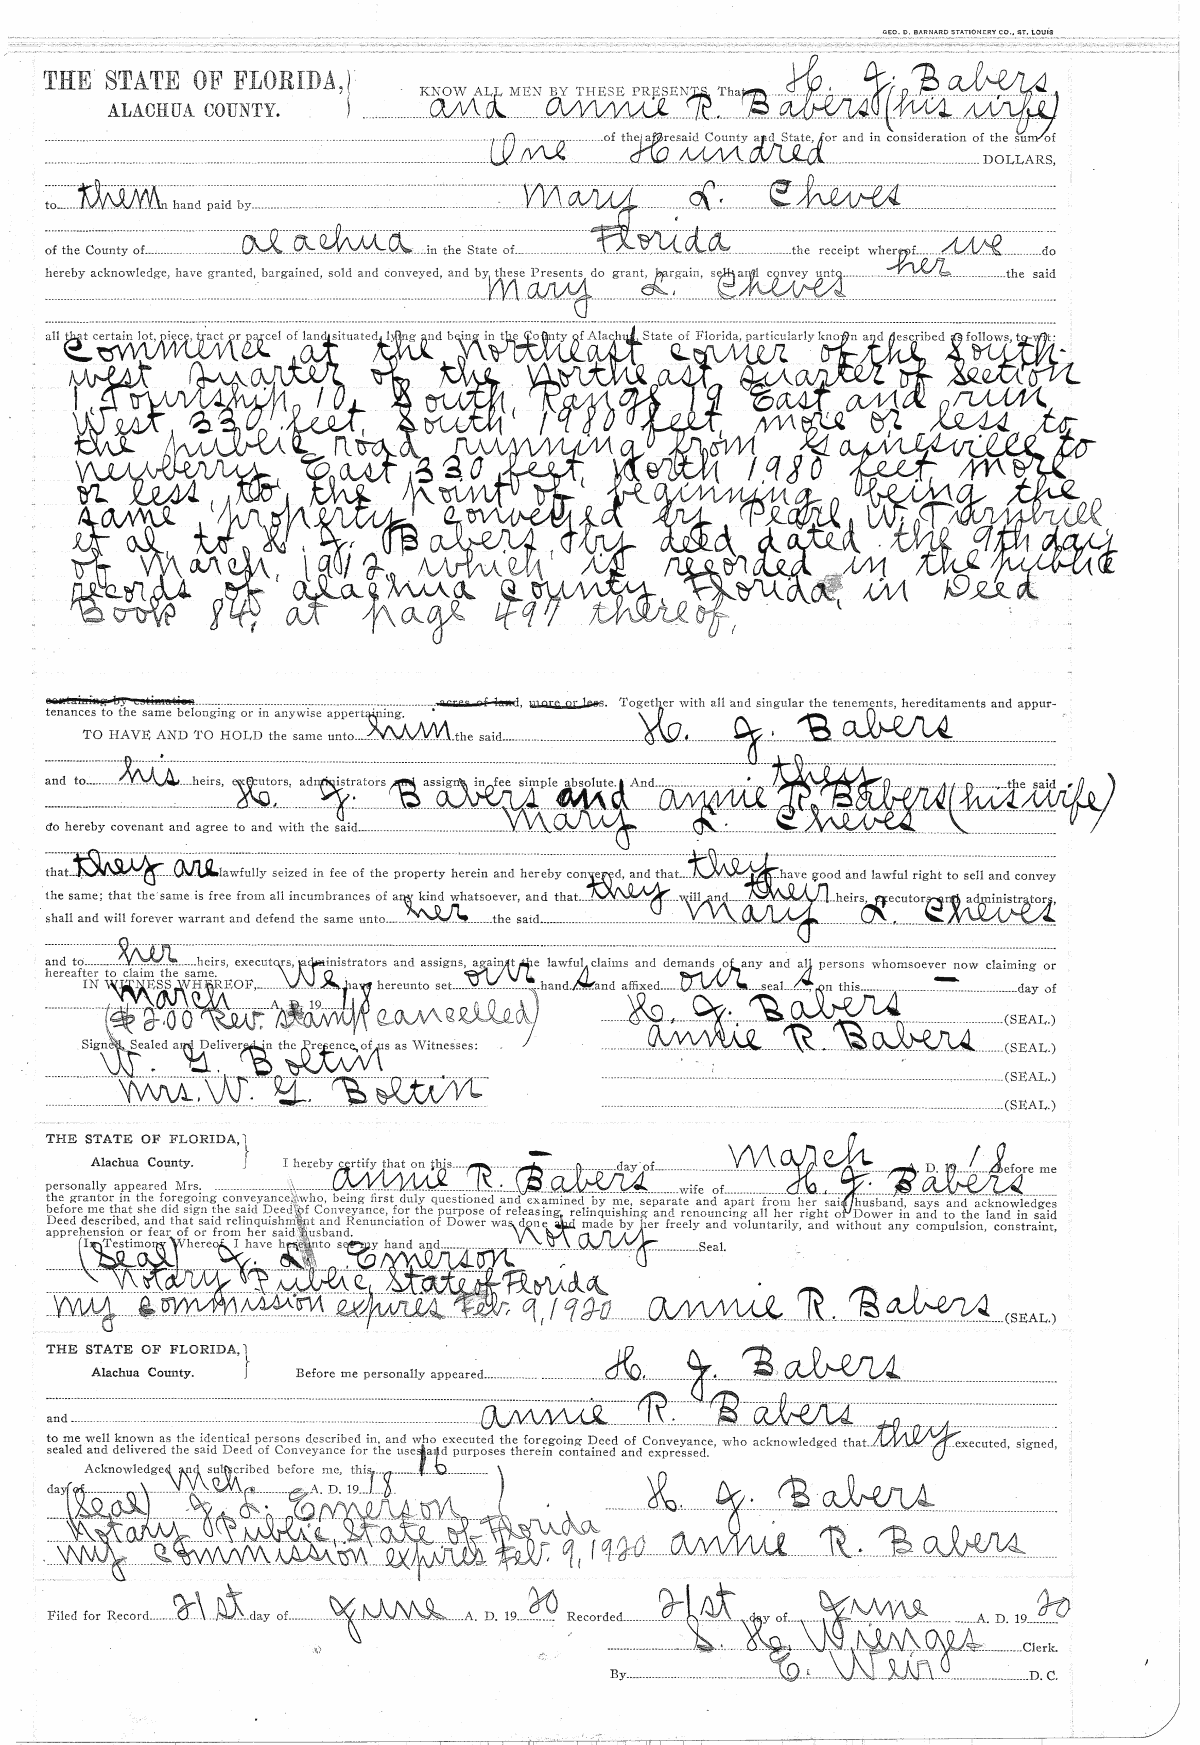 GEO. D. BARNARD STATIONERY CO., ST. LOUIS
THE STATE OF FLORIDA,
ALACHUA COUNTY.
KNOW ALL MEN BY THESE PRESENTS, That H. J. Babers
and Annie R. Babers (his wife)
of the aforesaid County and State, for and in consideration of the sum of
One Hundred DOLLARS,
to them in hand paid by Mary L. Cheves
of the County of Alachua in the State of Florida the receipt whereof we do
hereby acknowledge, have granted, bargained, sold and conveyed, and by these Presents do grant, bargain, sell and convey unto her the said
Mary L. Cheves
all that certain lot, piece, tract or parcel of land situated, lying and being in the County of Alachua, State of Florida, particularly known and described as follows, to-wit:
Commence at the Northeast corner of the South-
west quarter of the Northeast quarter of Section
1, Township 10, South, Range 19 East and run
West 330 feet, South 1980 feet, more or less to
the public road running from Gainesville to
Newberry, East 330 feet, North 1980 feet more
or less, to the point of beginning, being the
same property conveyed by Pearl W. Turnbull
et al, to H. J. Babers, by deed dated the 9th day
of March, 1912, which is recorded in the public
records of Alachua County, Florida, in Deed
Book 84, at page 497 thereof.
containing by estimation acres of land, more or less. Together with all and singular the tenements, hereditaments and appur-
tenances to the same belonging or in anywise appertaining.
TO HAVE AND TO HOLD the same unto him the said H. J. Babers
and to his heirs, executors, administrators and assigns in fee simple absolute. And they the said
H. J. Babers and Annie R. Babers (his wife)
do hereby covenant and agree to and with the said Mary L. Cheves
that they are lawfully seized in fee of the property herein and hereby conveyed, and that they have good and lawful right to sell and convey
the same; that the same is free from all incumbrances of any kind whatsoever, and that they will and their heirs, executors and administrators,
shall and will forever warrant and defend the same unto her the said Mary L. Cheves
and to her heirs, executors, administrators and assigns, against the lawful claims and demands of any and all persons whomsoever now claiming or
hereafter to claim the same.
IN WITNESS WHEREOF, We have hereunto set our hand s and affixed our seal s on this — day of
March A. D. 19 18
($2.00 Rev. Stamp cancelled)
H. J. Babers (SEAL.)
Signed, Sealed and Delivered in the Presence of us as Witnesses:
Annie R. Babers (SEAL.)
W. G. Boltin
(SEAL.)
Mrs. W. G. Boltin
(SEAL.)
THE STATE OF FLORIDA,
Alachua County.
I hereby certify that on this — day of March A. D. 18 before me
personally appeared Mrs. Annie R. Babers wife of H. J. Babers
the grantor in the foregoing conveyance, who, being first duly questioned and examined by me, separate and apart from her said husband, says and acknowledges
before me that she did sign the said Deed of Conveyance, for the purpose of releasing, relinquishing and renouncing all her right of Dower in and to the land in said
Deed described, and that said relinquishment and Renunciation of Dower was done and made by her freely and voluntarily, and without any compulsion, constraint,
apprehension or fear of or from her said husband.
In Testimony Whereof, I have hereunto set my hand and Notary Seal.
(Seal) J. L. Emerson
Notary Public, State of Florida
My commission expires Feb. 9, 1920 Annie R. Babers (SEAL.)
THE STATE OF FLORIDA,
Alachua County.
Before me personally appeared H. J. Babers
and Annie R. Babers
to me well known as the identical persons described in, and who executed the foregoing Deed of Conveyance, who acknowledged that they executed, signed,
sealed and delivered the said Deed of Conveyance for the uses and purposes therein contained and expressed.
Acknowledged and subscribed before me, this 16
day of Mch. A. D. 19 18
(Seal) J. L. Emerson H. J. Babers
Notary Public, State of Florida
My commission expires Feb. 9, 1920 Annie R. Babers
Filed for Record 21st day of June A. D. 19 20 Recorded 21st day of June A. D. 19 20
S. H. Wienges Clerk.
By E. Weir D. C.